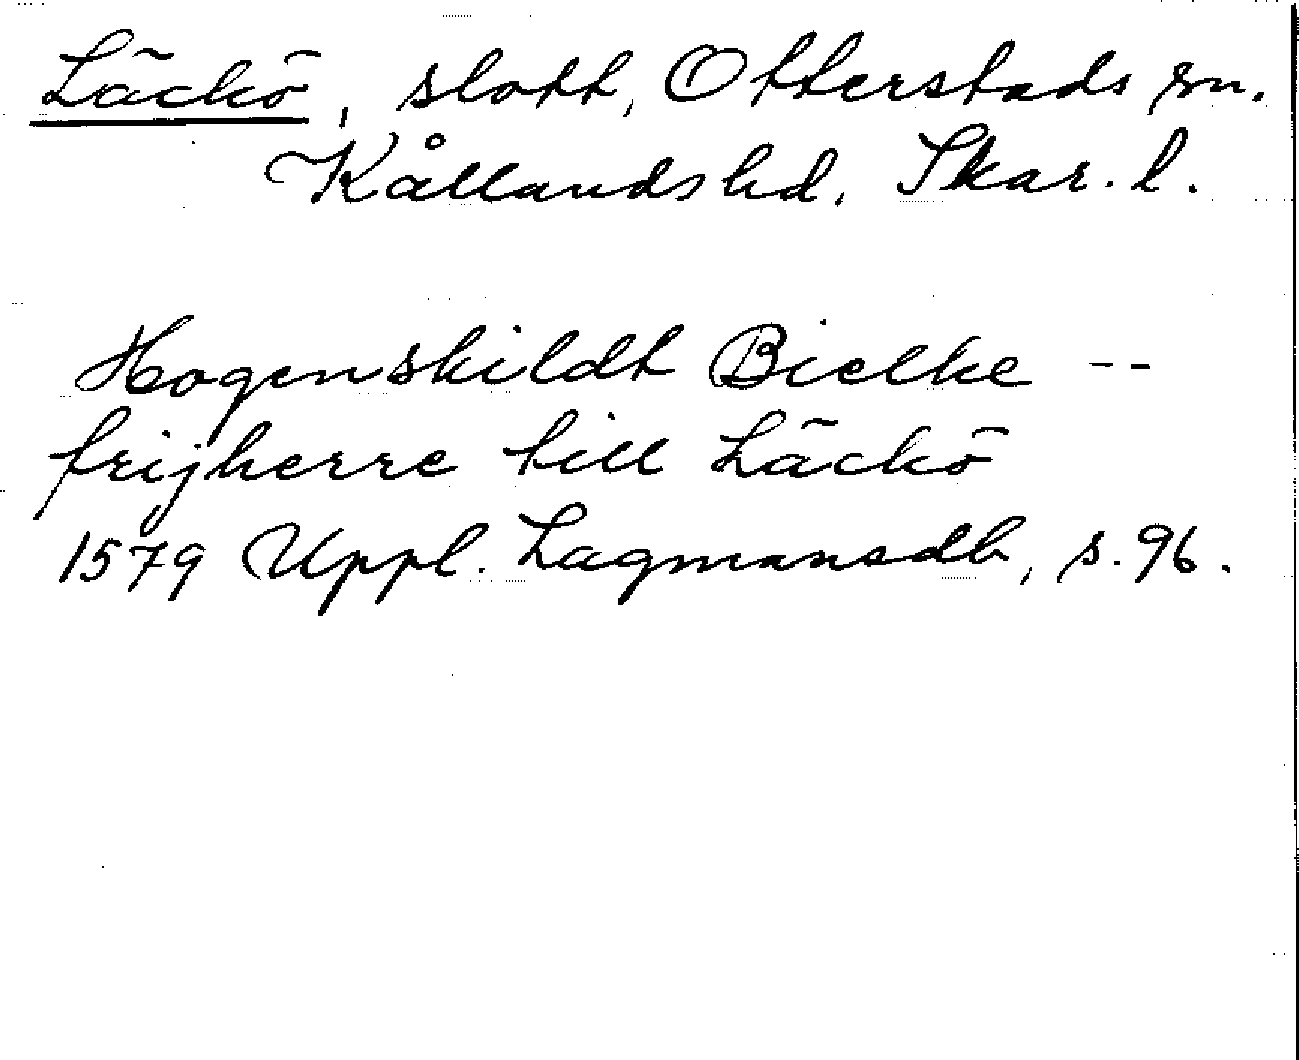 Läckö, slott, Otterstads sn.
Kållands hd, Skar. l.
Hogenskildt Bielke --
frijherre till Läckö
1579 Uppl. Lagmansdb, s. 96.